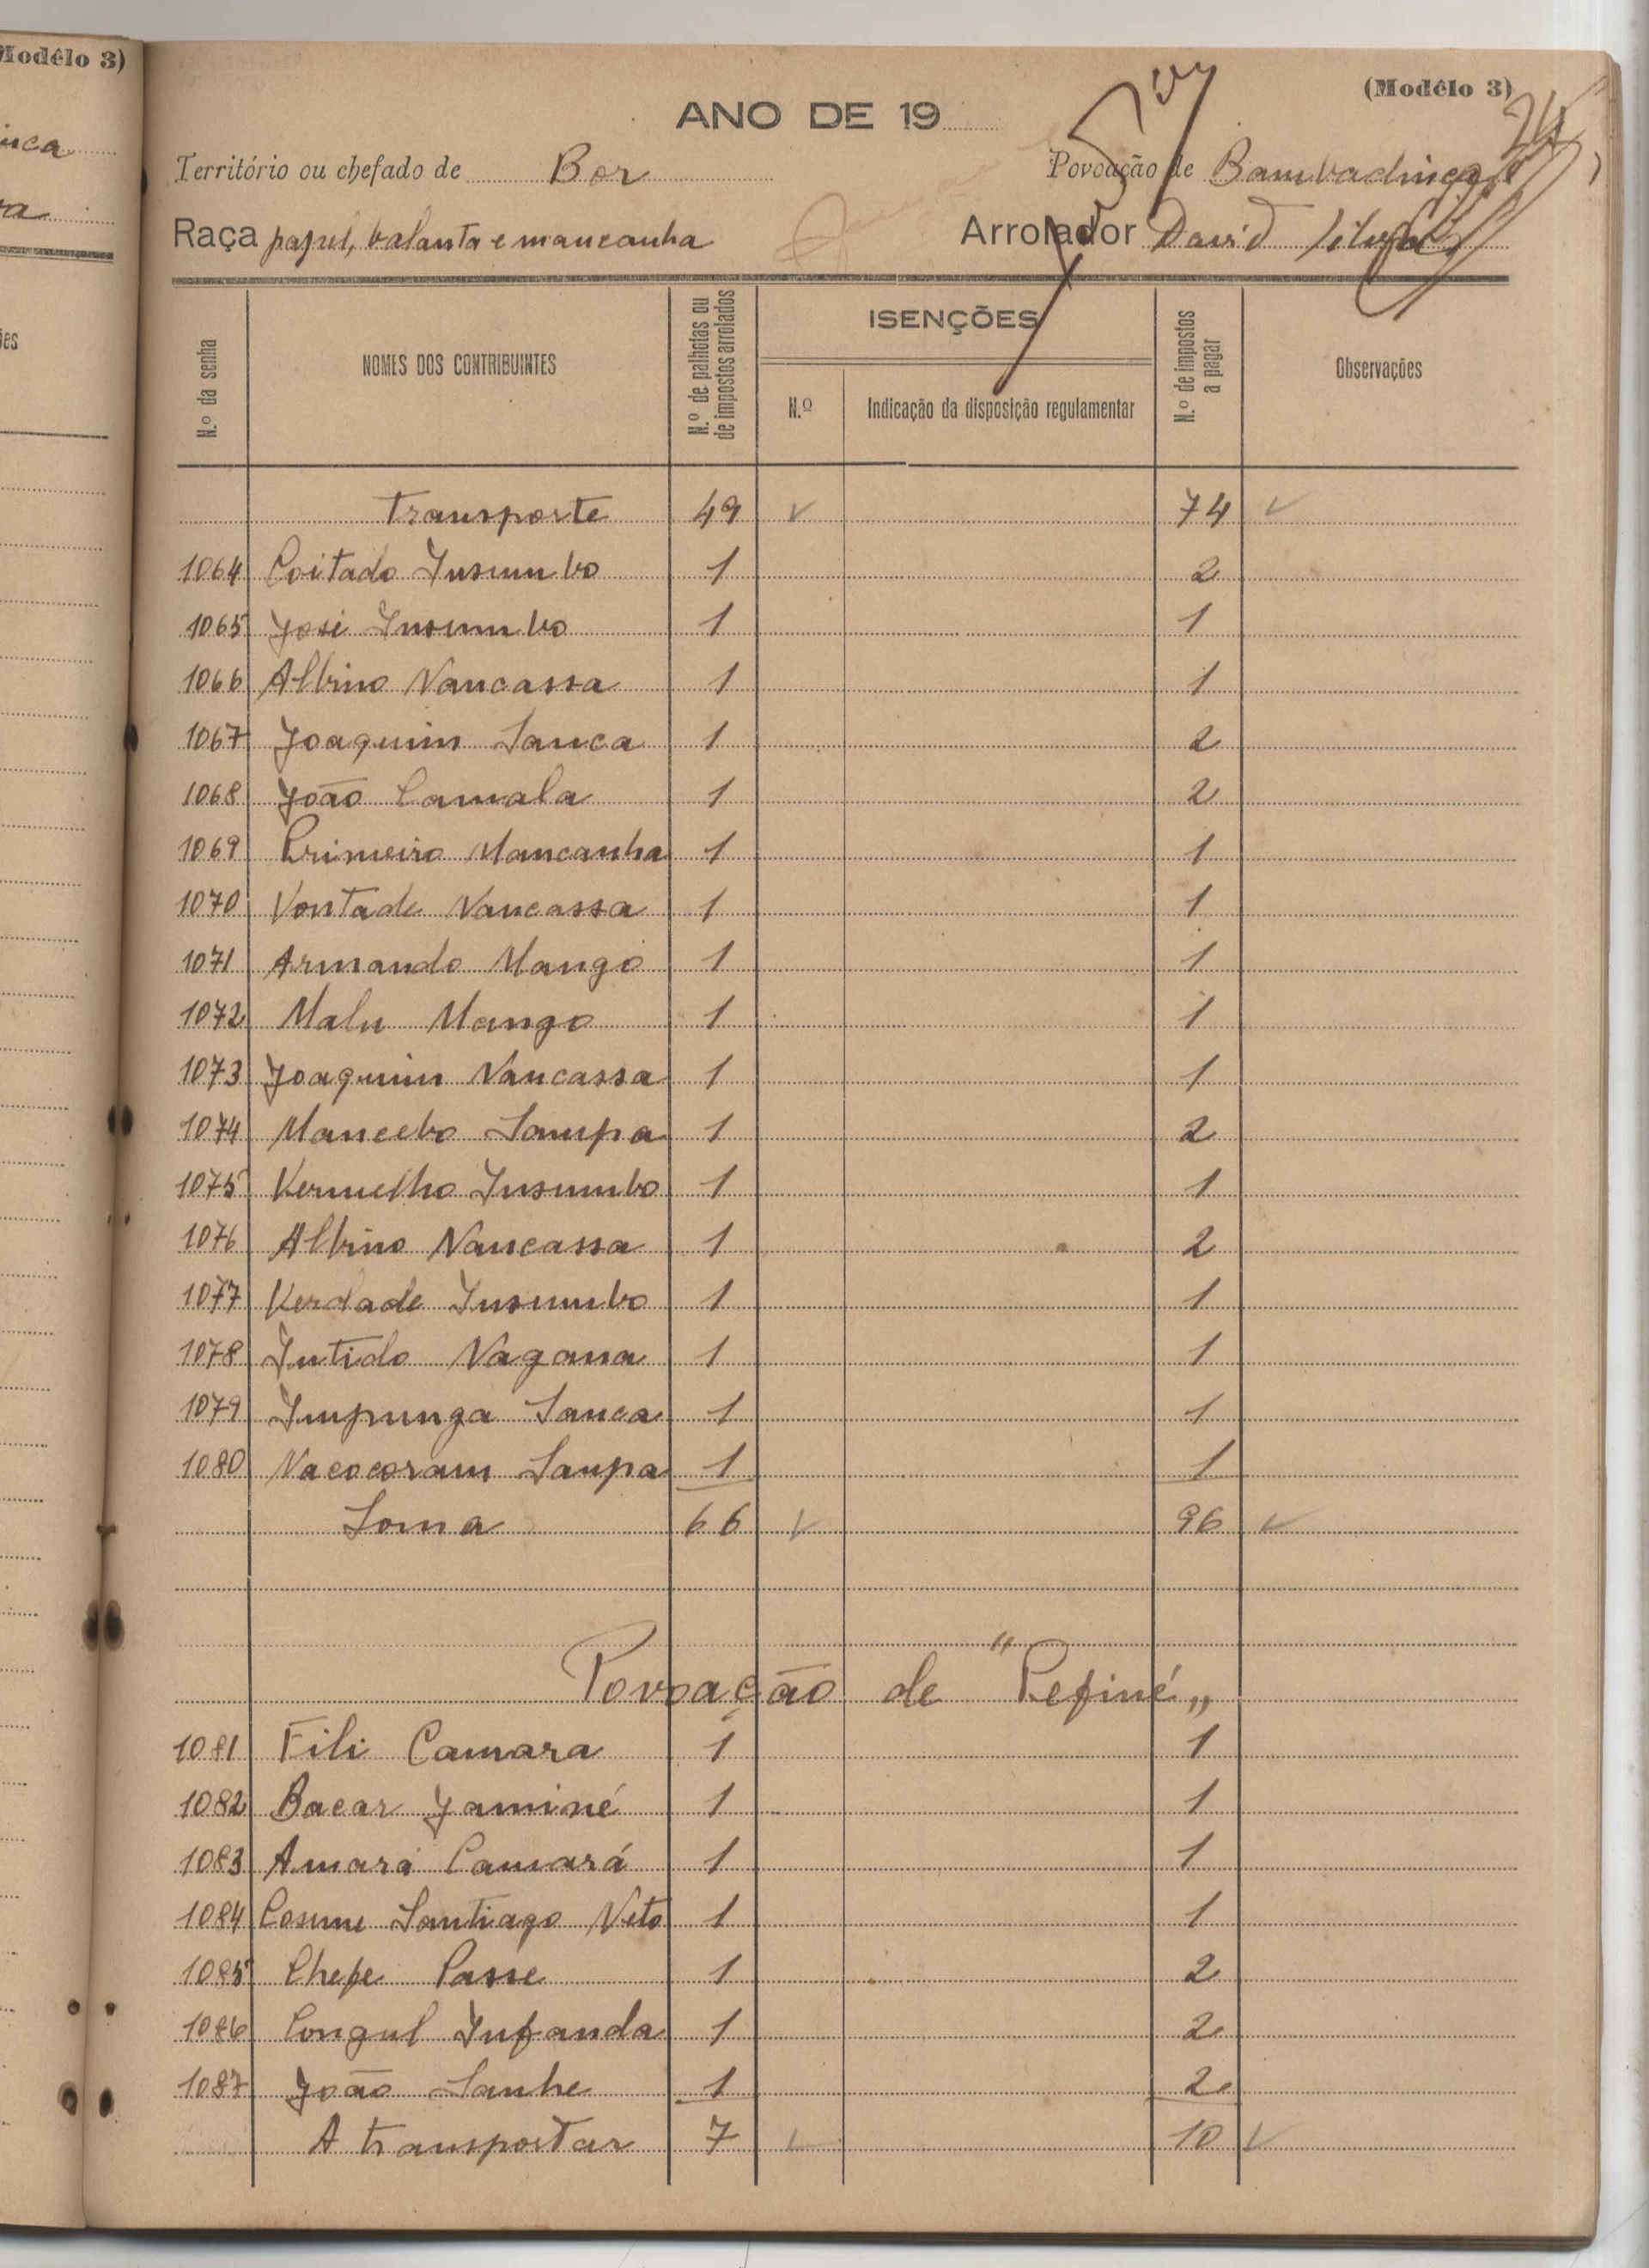 Modêlo 3)
(Modêlo 3)
24
ANO DE 19
Território ou chefado de Bor Povoação de Bambadinca
Raça papel, balanta e mancanha Arrolador David
N.º da senha NOMES DOS CONTRIBUINTES N.º de palhotas ou de impostos arrolados ISENÇÕES N.º de impostos a pagar Observações
N.º Indicação da disposição regulamentar
Transporte 49 74
1064 Coitado Insumbo 1 2
1065 José Insumbo 1 1
1066 Albino Nancassa 1 1
1067 Joaquim Sanca 1 2
1068 João Camala 1 2
1069 Primeiro Mancanha 1 1
1070 Vontade Nancassa 1 1
1071 Armando Mango 1 1
1072 Malu Mango 1 1
1073 Joaquim Nancassa 1 1
1074 Mancebo Sampa 1 2
1075 Vermelho Insumbo 1 1
1076 Albino Nancassa 1 2
1077 Verdade Insumbo 1 1
1078 Intido Nagana 1 1
1079 Impunga Sanca 1 1
1080 Nacocoram Sanpa 1 1
Soma 66 96
Povoação de "Pefiné"
1081 Fili Camara 1 1
1082 Bacar Jaminé 1 1
1083 Amará Camará 1 1
1084 Cosme Santiago Neto 1 1
1085 Chefe Passe 1 2
1086 Congul Infanda 1 2
1087 João Sanhe 1 2
A transportar 7 10